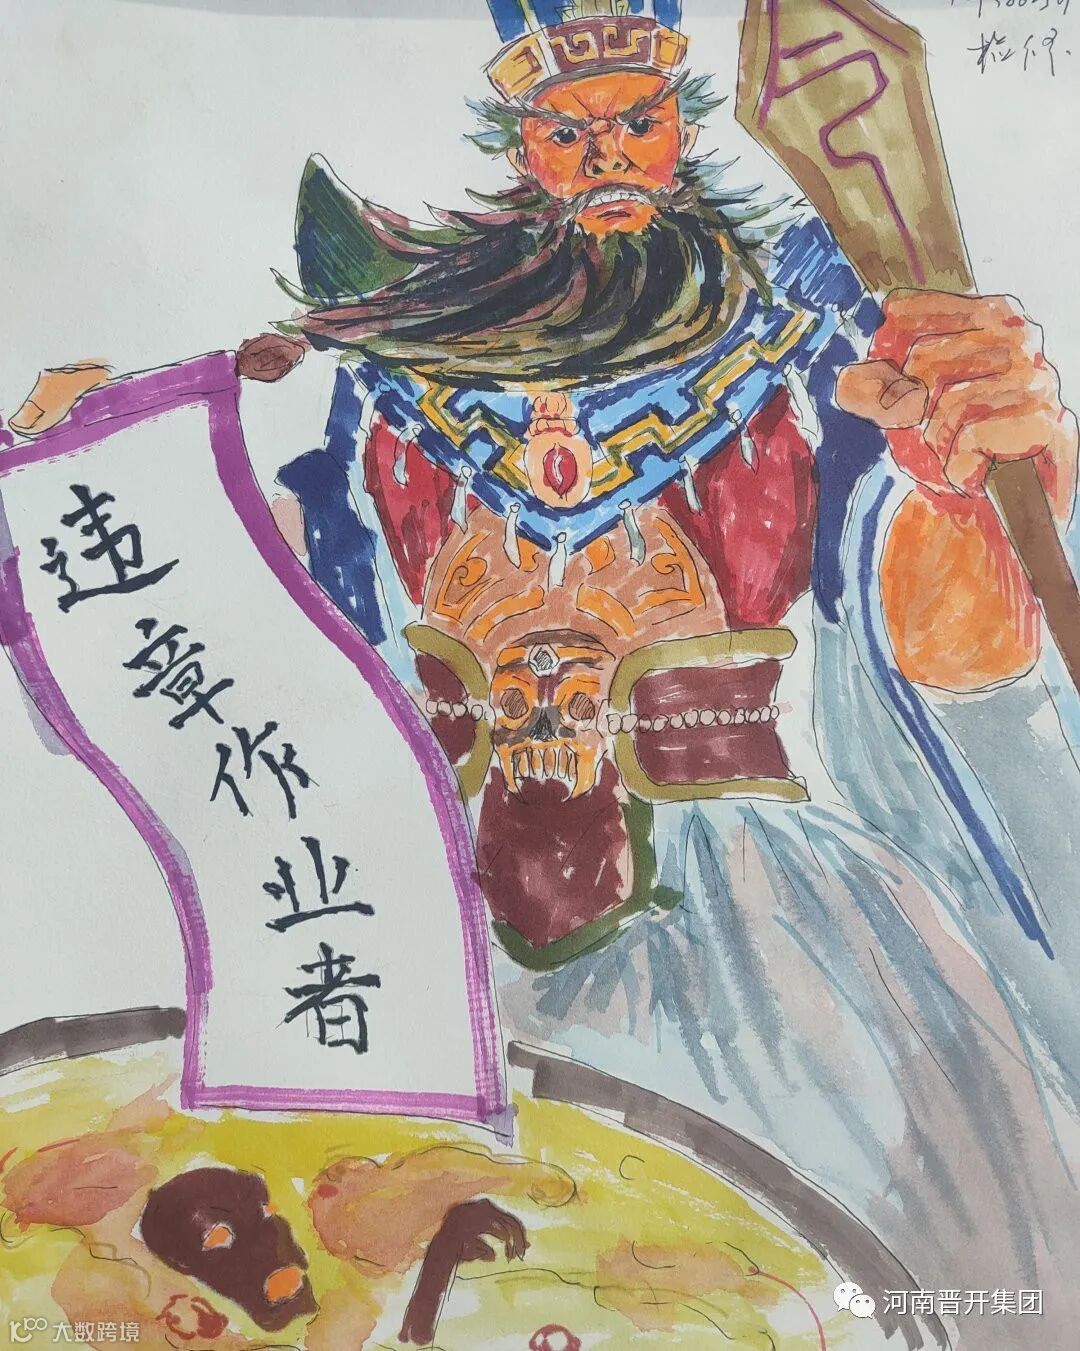 检修
违章作业者
河南晋开集团
大数跨境